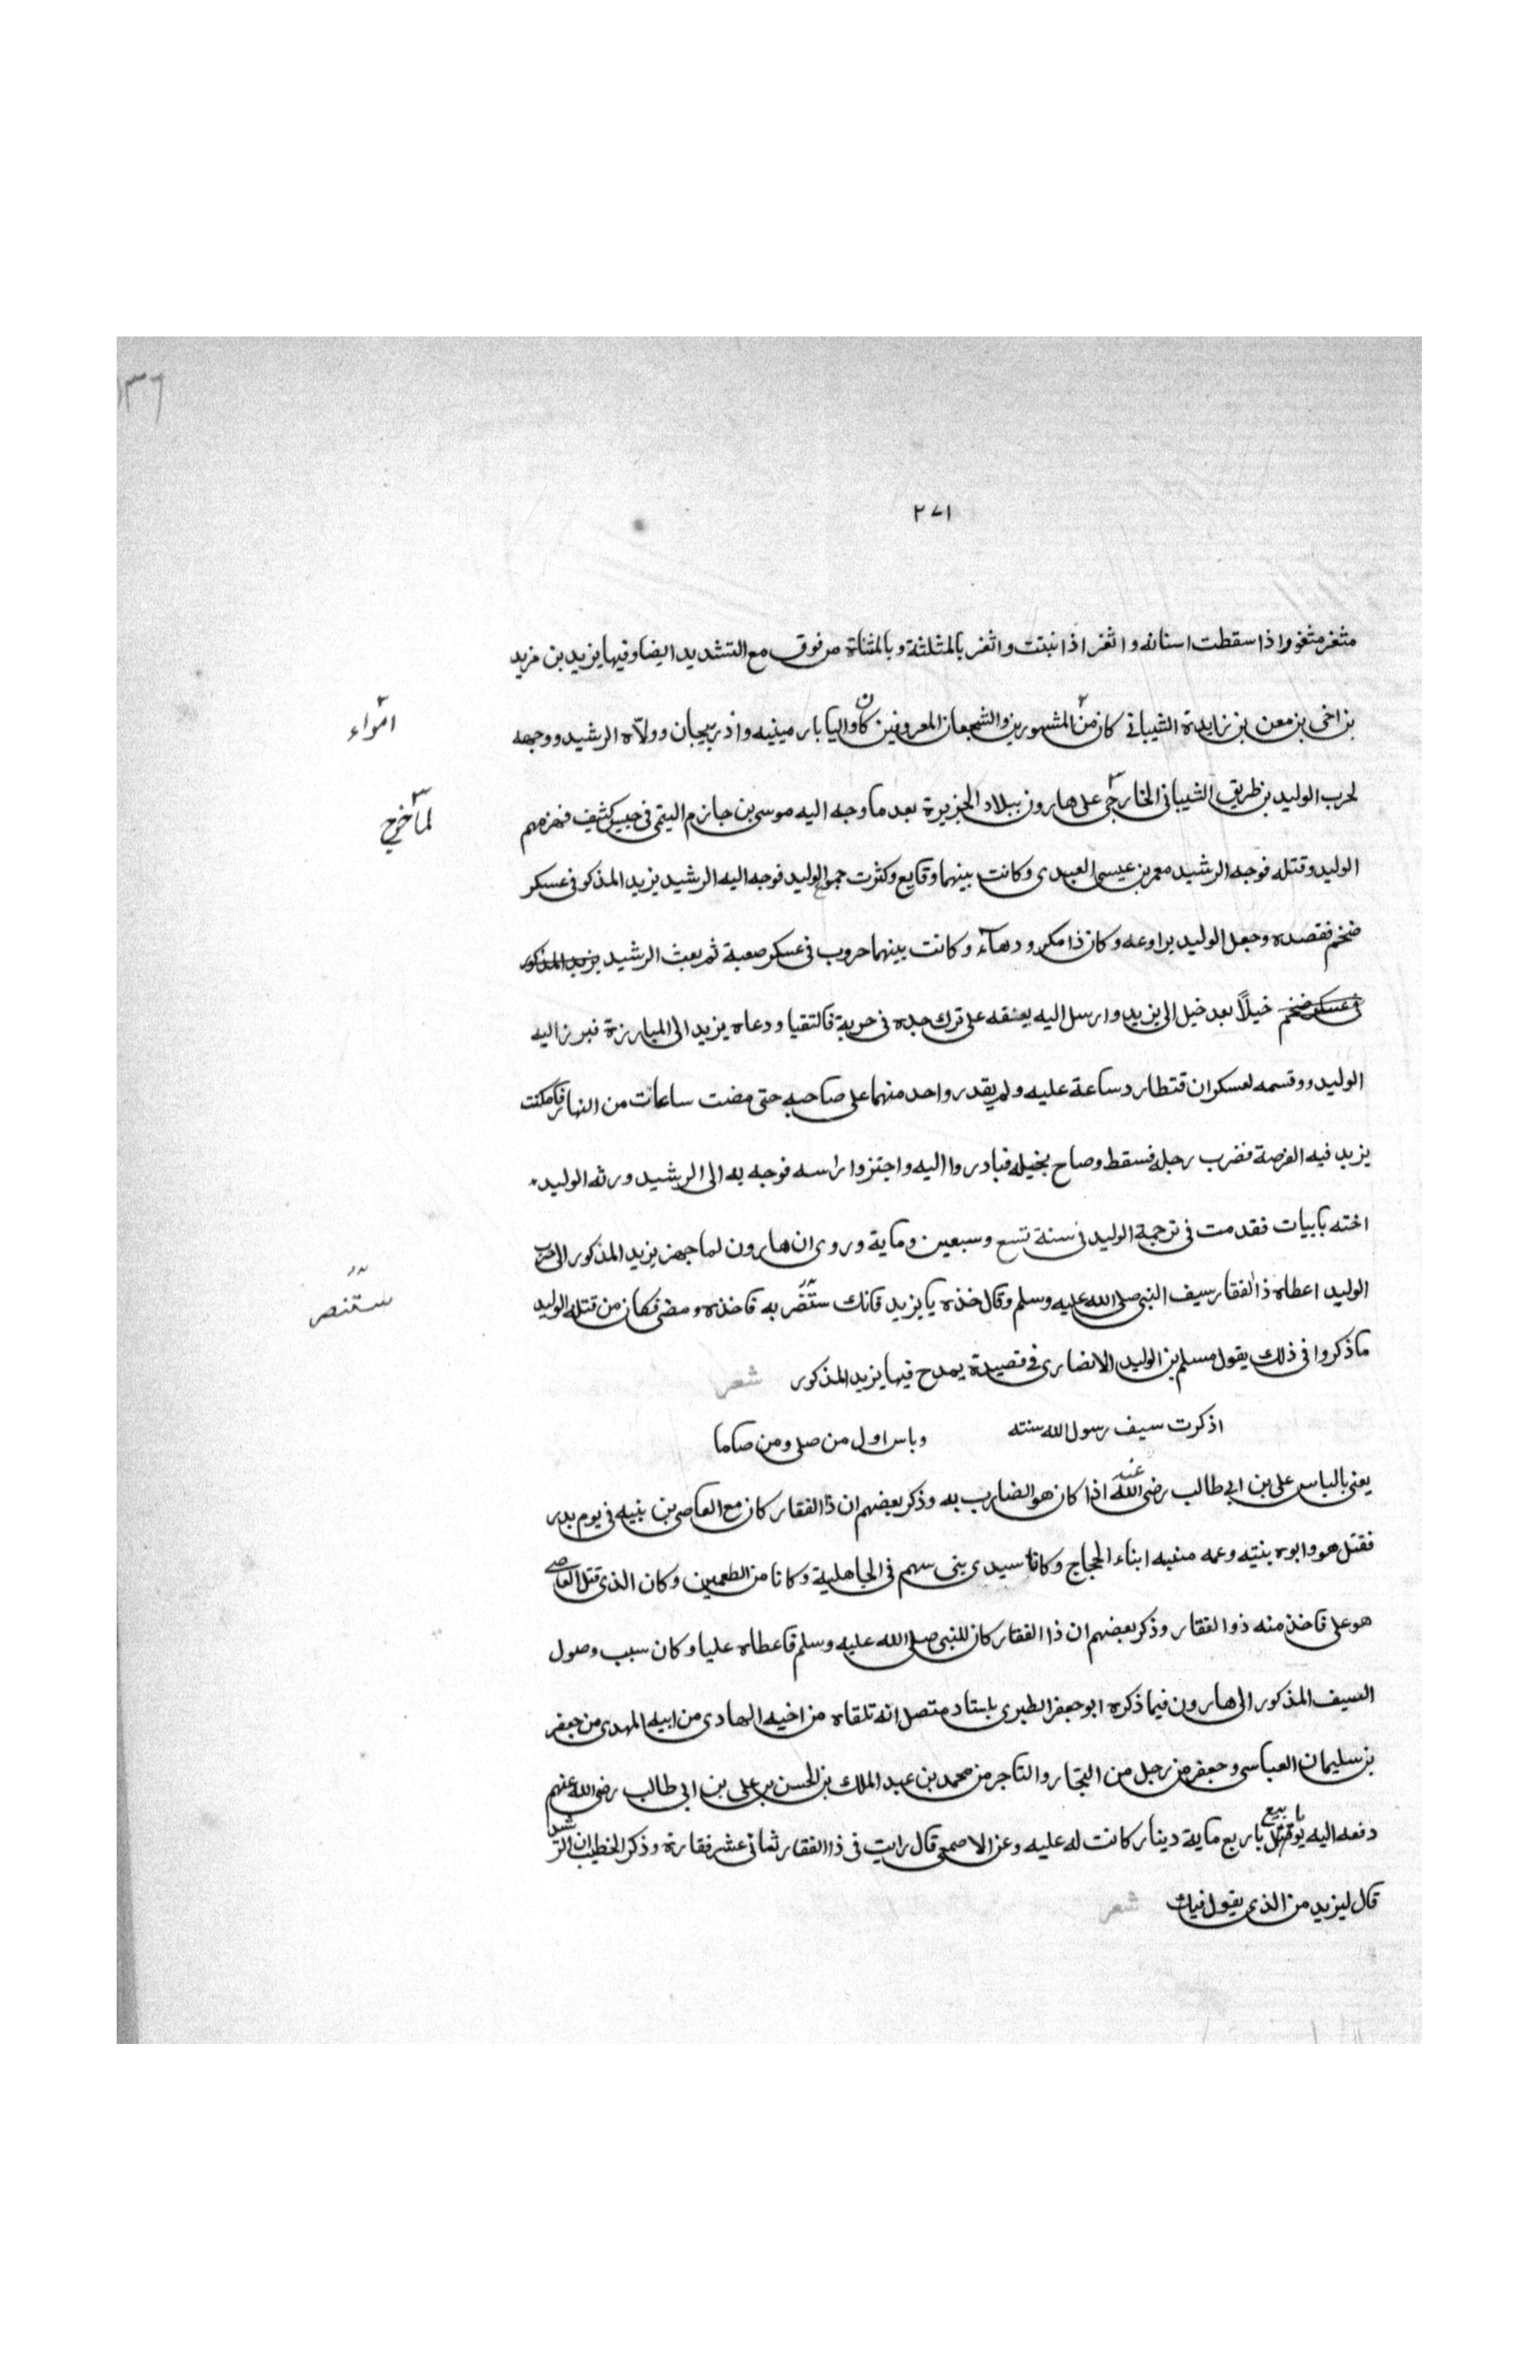 ١٣٦
٢٧١
مثغر مثغور اذا سقطت اسنانه و اثغر اذا نبتت واتغر بالمثلثة وبالمثناة من فوق مع التشديد ايضا وفيها يزيد بن مزيد
بن اخي بن معن بن زايدة الشيباني كان من المشهورين والشجعان المعروفين كان واليا بارمينيه واذربيجان وولاّه الرشيد ووجهه
امراء
لحرب الوليد بن ظريق الشيباني الخارجي على هارون ببلاد الجزيرة بعد ما وجه اليه موسى بن جازم اليتمي في جيش كثيف فهزمهم
لما خرج
الوليد وقتله فوجه الرشيد معمر بن عيسى العبدى وكانت بينهما وقايع وكثرت جموع الوليد فوجه اليه الرشيد يزيد المذكور في عسكر
ضخم فقصده وجعل الوليد يراوعه وكان ذا مكر ودهآء وكانت بينهما حروب في عسكر صعبة ثم بعث الرشيد يزيد المذكور
في عسكر ضخم خيلاً بعد خيل الى يزيد وارسل اليه يعنقه على ترك جده في حربة فالتقيا ودعاه يزيد الى المبارزة فبرز اليه
الوليد ووقسمه لعسكران فتطارد ساعة عليه ولم يقدر واحد منهما على صاحبه حتى مضت ساعات من النهار فامكنت
يزيد فيه الفرصة فضرب رجله فسقط وصاح بخيله فبادروا اليه واجتزوا راسه فوجه به الى الرشيد ورثه الوليد
اخته بابيات فقدمت في ترجمة الوليد في سنة تسع وسبعين وماية وروى ان هارون لما جهز يزيد المذكور الى حرب
الوليد اعطاه ذا الفقار سيف النبي صلى الله عليه وسلم وقال خذه يا يزيد فانك ستنصر به فاخذه ومضى فكان من قتله الوليد
ستنصر
ما ذكروا في ذلك يقول مسلم بن الوليد الانصارى في قصيدة يمدح فيها يزيد المذكور شعر
اذكرت سيف رسول الله سنته وباس اول من صلى ومن صاما
يعنى بالباس على بن ابي طالب رضى الله عنه اذا كان هو الضارب به وذكر بعضهم ان ذا الفقار كان مع العاصى بن نبيه في يوم بدر
فقتل هو وابوه بنتيه وعمه منبه ابناء الحجاج وكانا سيدى بنى سهم في الجاهلية وكانا من الطعمين وكان الذى قتل العاصى
هو على فاخذ منه ذو الفقار وذكر بعضهم ان ذا الفقار كان للنبى صلى الله عليه وسلم فاعطاه عليا وكان سبب وصول
السيف المذكور الى هارون فيما ذكره ابو جعفر الطبرى باستاد متصل انه تلقاه من اخيه الهادى من ابيه المهدى من جعفر
بن سليمان العباسى وجعفر من رجل من التجار والتاجر من محمد بن عبد الملك بن الحسن بن على بن ابى طالب رضى الله عنهم
دفعه اليه يوم قتل باربع ماية دينار كانت له عليه وعن الاصمعى قال رايت في ذا الفقار ثمانى عشر فقارة وذكر الخطيب ان الرشيد
قال ليزيد من الذى يقول فيك شعر